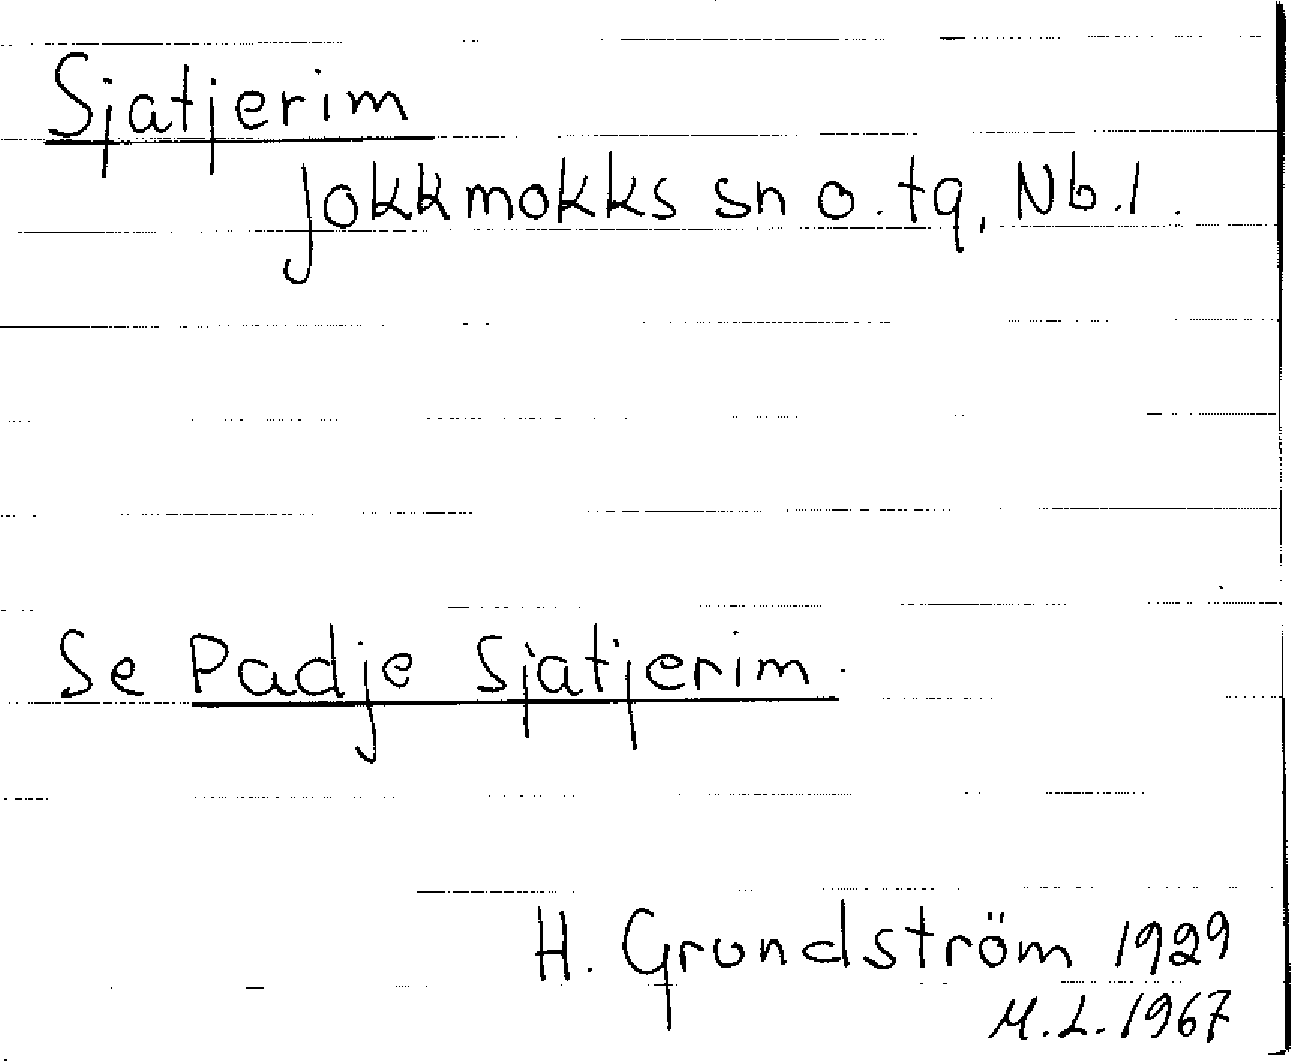 Sjatjerim
Jokkmokks sn o. tg, Nb.l.
Se Padje Sjatjerim.
H. Grundström 1929
M.L. 1967